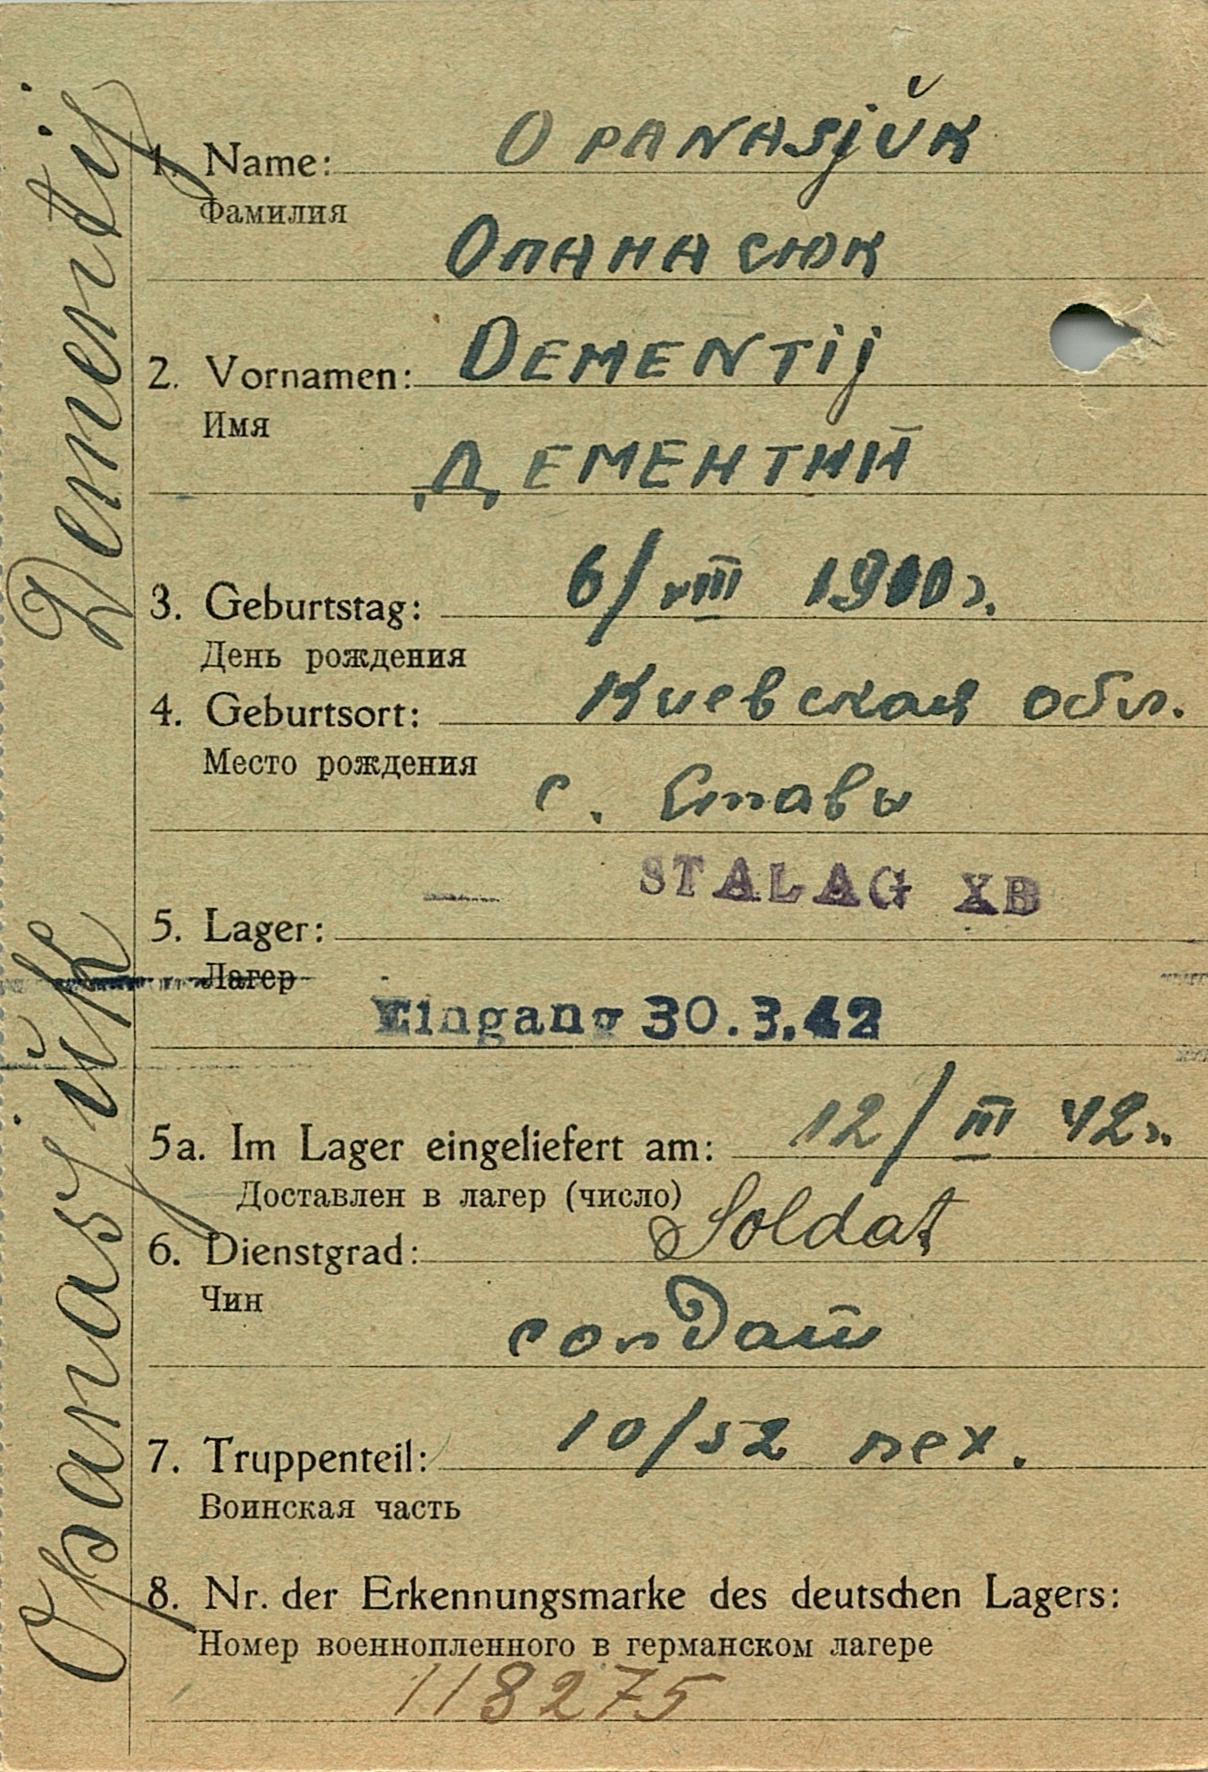 Opanasjŭk Dementij
1. Name: OPANASjŬK
Фамилия
ОПАНАСЮК
2. Vornamen: DEMENTij
Имя
ДЕМЕНТИЙ
3. Geburtstag: 6/VIII 1900г.
День рождения
4. Geburtsort: Киевская обл.
Место рождения
с. Ставы
STALAG XB
5. Lager:
Лагер
Eingang 30.3.42
5a. Im Lager eingeliefert am: 12/III 42г.
Доставлен в лагер (число)
6. Dienstgrad: Soldat
Чин
солдат
7. Truppenteil: 10/52 пех.
Воинская часть
8. Nr. der Erkennungsmarke des deutschen Lagers:
Номер военнопленного в германском лагере
118275